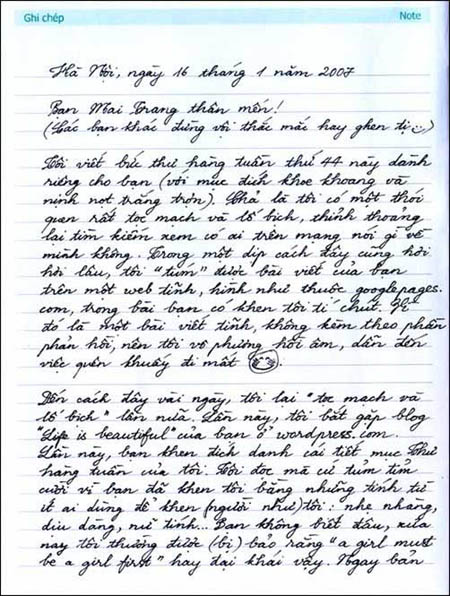 Ghi chép Note
Hà Nội, ngày 16 tháng 1 năm 2007
Bạn Mai Trang thân mến!
(Các bạn khác đừng vội thắc mắc hay ghen tị :))
Tôi viết bức thư hàng tuần thứ 44 này dành
riêng cho bạn (với mục đích khoe khoang và
nịnh nọt trắng trợn). Chả là tôi có một thói
quen rất tọc mạch và lố bịch, thỉnh thoảng
lại tìm kiếm xem có ai trên mạng nói gì về
mình không. Trong một dịp cách đây cũng hơi
hơi lâu, tôi "túm" được bài viết của bạn
trên một web tĩnh, hình như thuộc googlepages.
com, trong bài bạn có khen tôi tí chút. Vì
đó là một bài viết tĩnh, không kèm theo phần
phản hồi, nên tôi vô phương hồi âm, dẫn đến
việc quên khuấy đi mất
Đến cách đây vài ngày, tôi lại "tọc mạch và
lố bịch" lần nữa. Lần này, tôi bắt gặp blog
"Life is beautiful" của bạn ở wordpress.com.
Lần này, bạn khen đích danh cái tiết mục Thư
hàng tuần của tôi. Tôi đọc mà cứ tủm tỉm
cười vì bạn đã khen tôi bằng những tính từ
ít ai dùng để khen (người như) tôi: nhẹ nhàng,
dịu dàng, nữ tính... Bạn không biết đâu, xưa
nay tôi thường được (bị) bảo rằng "a girl must
be a girl first" hay đại khái vậy. Ngay bản